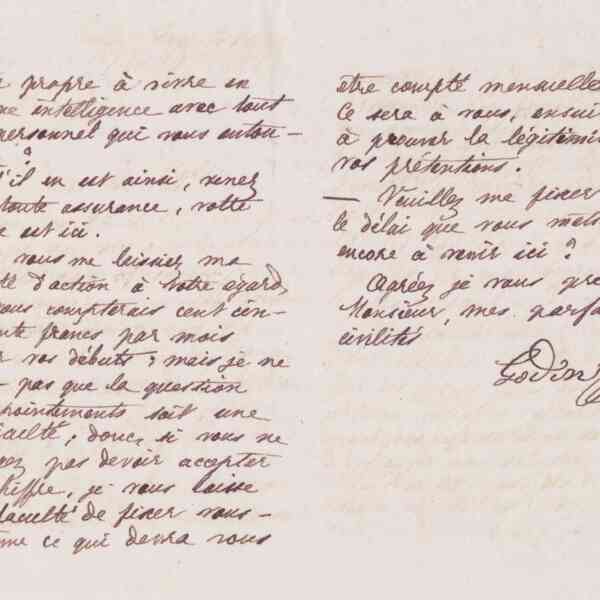 propre à vivre en
intelligence avec tout
personnel qui vous entou-
?
s'il en est ainsi, venez
toute assurance, votre
est ici.
vous me laissiez ma
d'action à votre égard,
vous compterais cent cin-
francs par mois
vos débuts ; mais je ne
pas que la question
appointements soit une
donc, si vous ne
pas devoir accepter
chiffre, je vous laisse
faculté de fixer vous-
ce qui devra vous
être compté mensuelle
Ce sera à vous, ensui
à prouver la légitimi
vos prétentions.
— Veuillez me fixer
le délai que vous mets
encore à venir ici ?
Agréez je vous pr
Monsieur, mes parfa
civilités
Godin